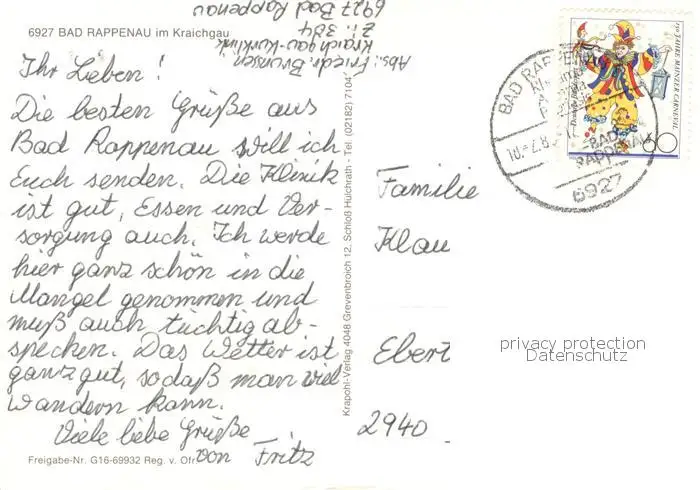 6927 BAD RAPPENAU im Kraichgau
Abs.: Friedr. Brunssen
Kraichgau-Kurklinik
Zi. 384
6927 Bad Rappenau
Ihr Lieben!
Die besten Grüße aus
Bad Rappenau will ich
Euch senden. Die Klinik
ist gut, Essen und Ver-
sorgung auch. Ich werde
hier ganz schön in die
Mangel genommen und
muß auch tüchtig ab-
specken. Das Wetter ist
ganz gut, sodaß man viel
wandern kann.
Viele liebe Grüße
von Fritz
Freigabe-Nr. G16-69932 Reg. v. Ofr
Krapohl-Verlag 4048 Grevenbroich 12, Schloß Hülchrath - Tel. (02182) 7104
150 JAHRE MAINZER CARNEVAL
60
BAD RAPPENAU
BAD
RAPPENAU
6927
Familie
Klau
Ebert
2940
privacy protection
Datenschutz